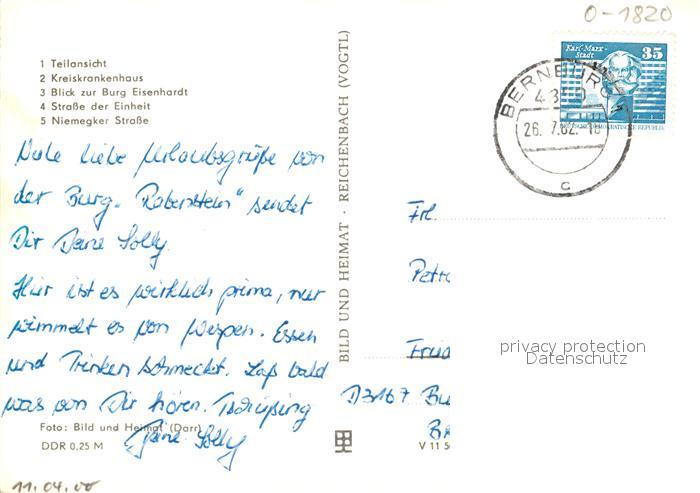 O-1820
1 Teilansicht
2 Kreiskrankenhaus
3 Blick zur Burg Eisenhardt
4 Straße der Einheit
5 Niemegker Straße
Viele liebe Urlaubsgrüße von
der Burg „Rabenstein“ sendet
Dir Deine Solly.
Hier ist es wirklich prima, nur
wimmelt es von Wespen. Essen
und Trinken schmeckt. Laß bald
was von Dir hören. Tschüßing
Deine Solly
Foto: Bild und Heimat (Darr)
DDR 0,25 M
11.04.00
BILD UND HEIMAT · REICHENBACH (VOGTL)
V 11 5
Karl-Marx-
Stadt
35
DEUTSCHE DEMOKRATISCHE REPUBLIK
BERNBURG
26. 7.82. 18
c
Frl.
Petr
D3167 Bu
privacy protection
Datenschutz